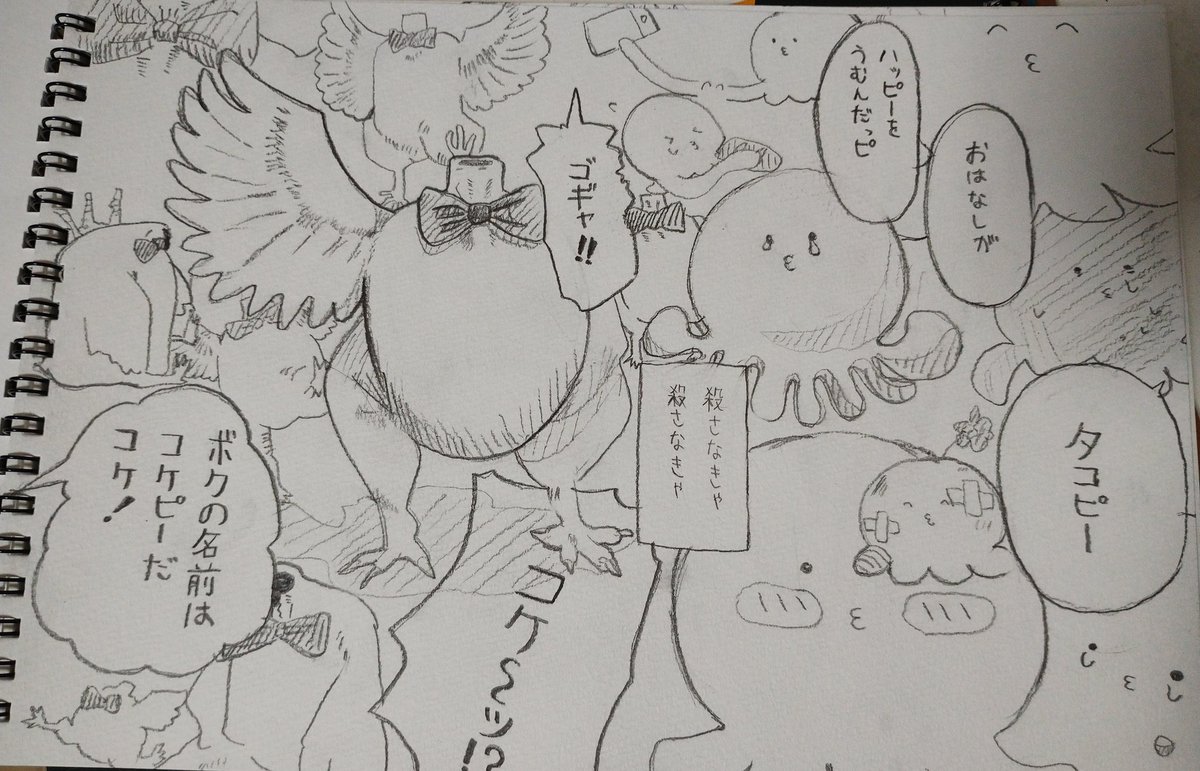 タコピー
おはなしが
ハッピーを
うむんだっピ
殺さなきゃ
殺さなきゃ
ゴギャ!!
コケ〜ッ!!
ボクの名前は
コケピーだ
コケ!